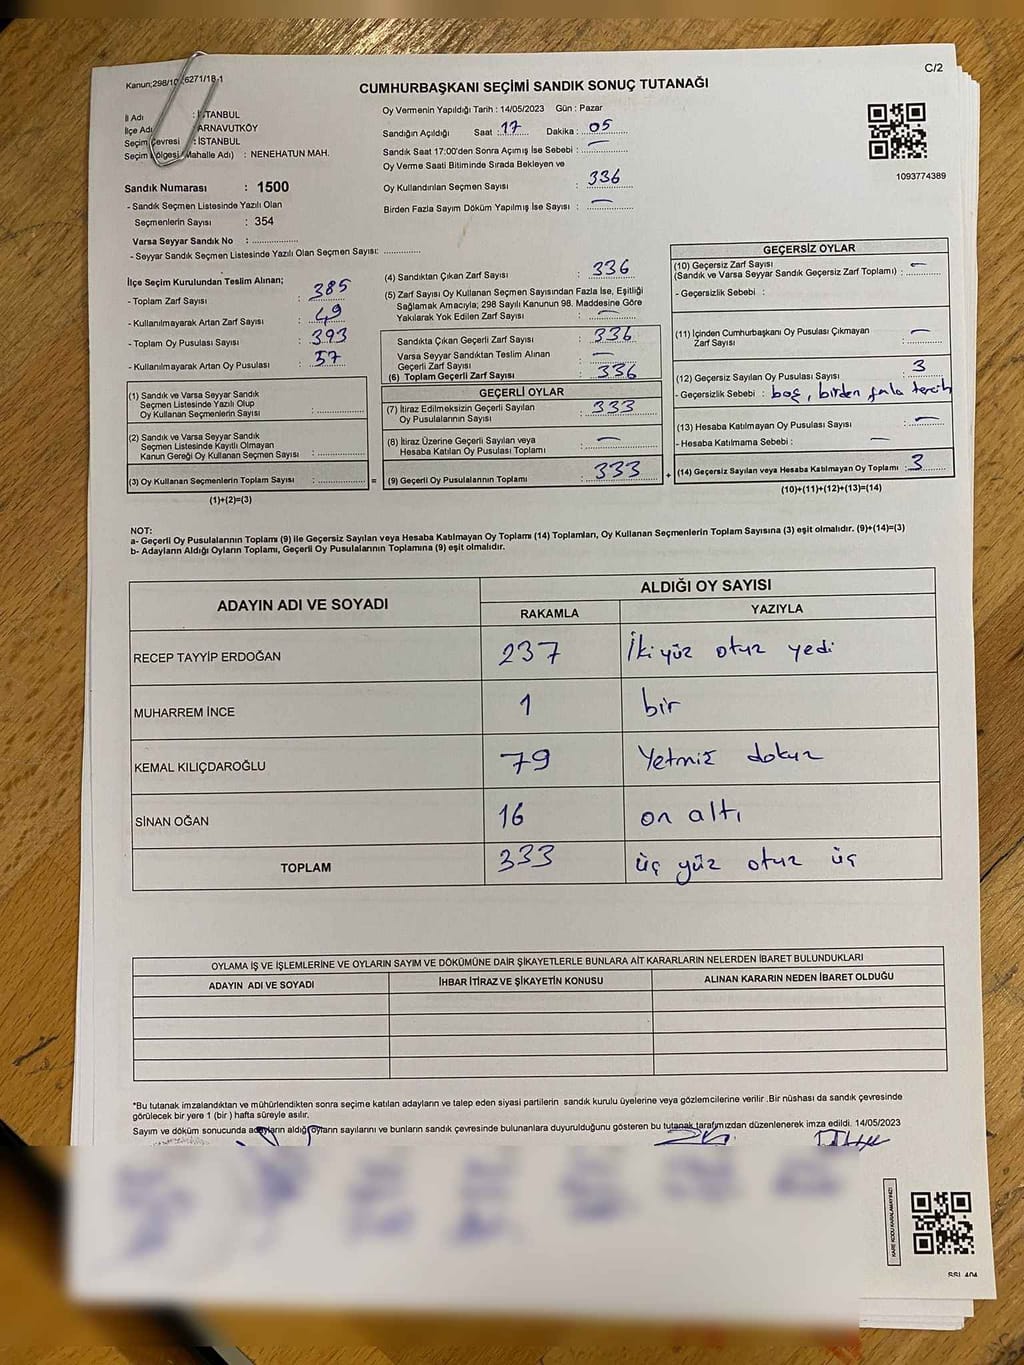 Kanun;298/10 6271/18-1
C/2
CUMHURBAŞKANI SEÇİMİ SANDIK SONUÇ TUTANAĞI
İl Adı : İSTANBUL
İlçe Adı ARNAVUTKÖY
Seçim Çevresi : İSTANBUL
Seçim Bölgesi (Mahalle Adı) : NENEHATUN MAH.
Sandık Numarası : 1500
- Sandık Seçmen Listesinde Yazılı Olan
Seçmenlerin Sayısı : 354
Varsa Seyyar Sandık No : ..................
- Seyyar Sandık Seçmen Listesinde Yazılı Olan Seçmen Sayısı: ..............
Oy Vermenin Yapıldığı Tarih : 14/05/2023 Gün : Pazar
Sandığın Açıldığı Saat : 17 Dakika : 05
Sandık Saat 17:00'den Sonra Açımış İse Sebebi : —
Oy Verme Saati Bitiminde Sırada Bekleyen ve
Oy Kullandırılan Seçmen Sayısı : 336
Birden Fazla Sayım Döküm Yapılmış İse Sayısı : —
1093774389
İlçe Seçim Kurulundan Teslim Alınan;
- Toplam Zarf Sayısı : 385
- Kullanılmayarak Artan Zarf Sayısı : 49
- Toplam Oy Pusulası Sayısı : 393
- Kullanılmayarak Artan Oy Pusulası : 57
(1) Sandık ve Varsa Seyyar Sandık
Seçmen Listesinde Yazılı Olup
Oy Kullanan Seçmenlerin Sayısı :
(2) Sandık ve Varsa Seyyar Sandık
Seçmen Listesinde Kayıtlı Olmayan
Kanun Gereği Oy Kullanan Seçmen Sayısı :
(3) Oy Kullanan Seçmenlerin Toplam Sayısı : =
(1)+(2)=(3)
(4) Sandıktan Çıkan Zarf Sayısı : 336
(5) Zarf Sayısı Oy Kullanan Seçmen Sayısından Fazla İse, Eşitliği
Sağlamak Amacıyla; 298 Sayılı Kanunun 98. Maddesine Göre
Yakılarak Yok Edilen Zarf Sayısı : —
Sandıkta Çıkan Geçerli Zarf Sayısı : 336
Varsa Seyyar Sandıktan Teslim Alınan
Geçerli Zarf Sayısı : —
(6) Toplam Geçerli Zarf Sayısı : 336
GEÇERLİ OYLAR
(7) İtiraz Edilmeksizin Geçerli Sayılan
Oy Pusulalarının Sayısı : 333
(8) İtiraz Üzerine Geçerli Sayılan veya
Hesaba Katılan Oy Pusulası Toplamı : —
(9) Geçerli Oy Pusulalarının Toplamı : 333 +
GEÇERSİZ OYLAR
(10) Geçersiz Zarf Sayısı
(Sandık ve Varsa Seyyar Sandık Geçersiz Zarf Toplamı) : —
- Geçersizlik Sebebi :
(11) İçinden Cumhurbaşkanı Oy Pusulası Çıkmayan
Zarf Sayısı : —
(12) Geçersiz Sayılan Oy Pusulası Sayısı : 3
- Geçersizlik Sebebi : boş, birden fazla tercih
(13) Hesaba Katılmayan Oy Pusulası Sayısı : —
- Hesaba Katılmama Sebebi : —
(14) Geçersiz Sayılan veya Hesaba Katılmayan Oy Toplamı : 3
(10)+(11)+(12)+(13)=(14)
NOT:
a- Geçerli Oy Pusulalarının Toplamı (9) ile Geçersiz Sayılan veya Hesaba Katılmayan Oy Toplamı (14) Toplamları, Oy Kullanan Seçmenlerin Toplam Sayısına (3) eşit olmalıdır. (9)+(14)=(3)
b- Adayların Aldığı Oyların Toplamı, Geçerli Oy Pusulalarının Toplamına (9) eşit olmalıdır.
ADAYIN ADI VE SOYADI ALDIĞI OY SAYISI
RAKAMLA YAZIYLA
RECEP TAYYİP ERDOĞAN 237 İki yüz otuz yedi
MUHARREM İNCE 1 bir
KEMAL KILIÇDAROĞLU 79 Yetmiş dokuz
SİNAN OĞAN 16 on altı
TOPLAM 333 üç yüz otuz üç
OYLAMA İŞ VE İŞLEMLERİNE VE OYLARIN SAYIM VE DÖKÜMÜNE DAİR ŞİKAYETLERLE BUNLARA AİT KARARLARIN NELERDEN İBARET BULUNDUKLARI
ADAYIN ADI VE SOYADI İHBAR İTİRAZ VE ŞİKAYETİN KONUSU ALINAN KARARIN NEDEN İBARET OLDUĞU
*Bu tutanak imzalandıktan ve mühürlendikten sonra seçime katılan adayların ve talep eden siyasi partilerin sandık kurulu üyelerine veya gözlemcilerine verilir .Bir nüshası da sandık çevresinde
görülecek bir yere 1 (bir ) hafta süreyle asılır.
Sayım ve döküm sonucunda adayların aldığı oyların sayılarını ve bunların sandık çevresinde bulunanlara duyurulduğunu gösteren bu tutanak tarafımızdan düzenlenerek imza edildi. 14/05/2023
KARE KODU KARALAMAYINIZ!